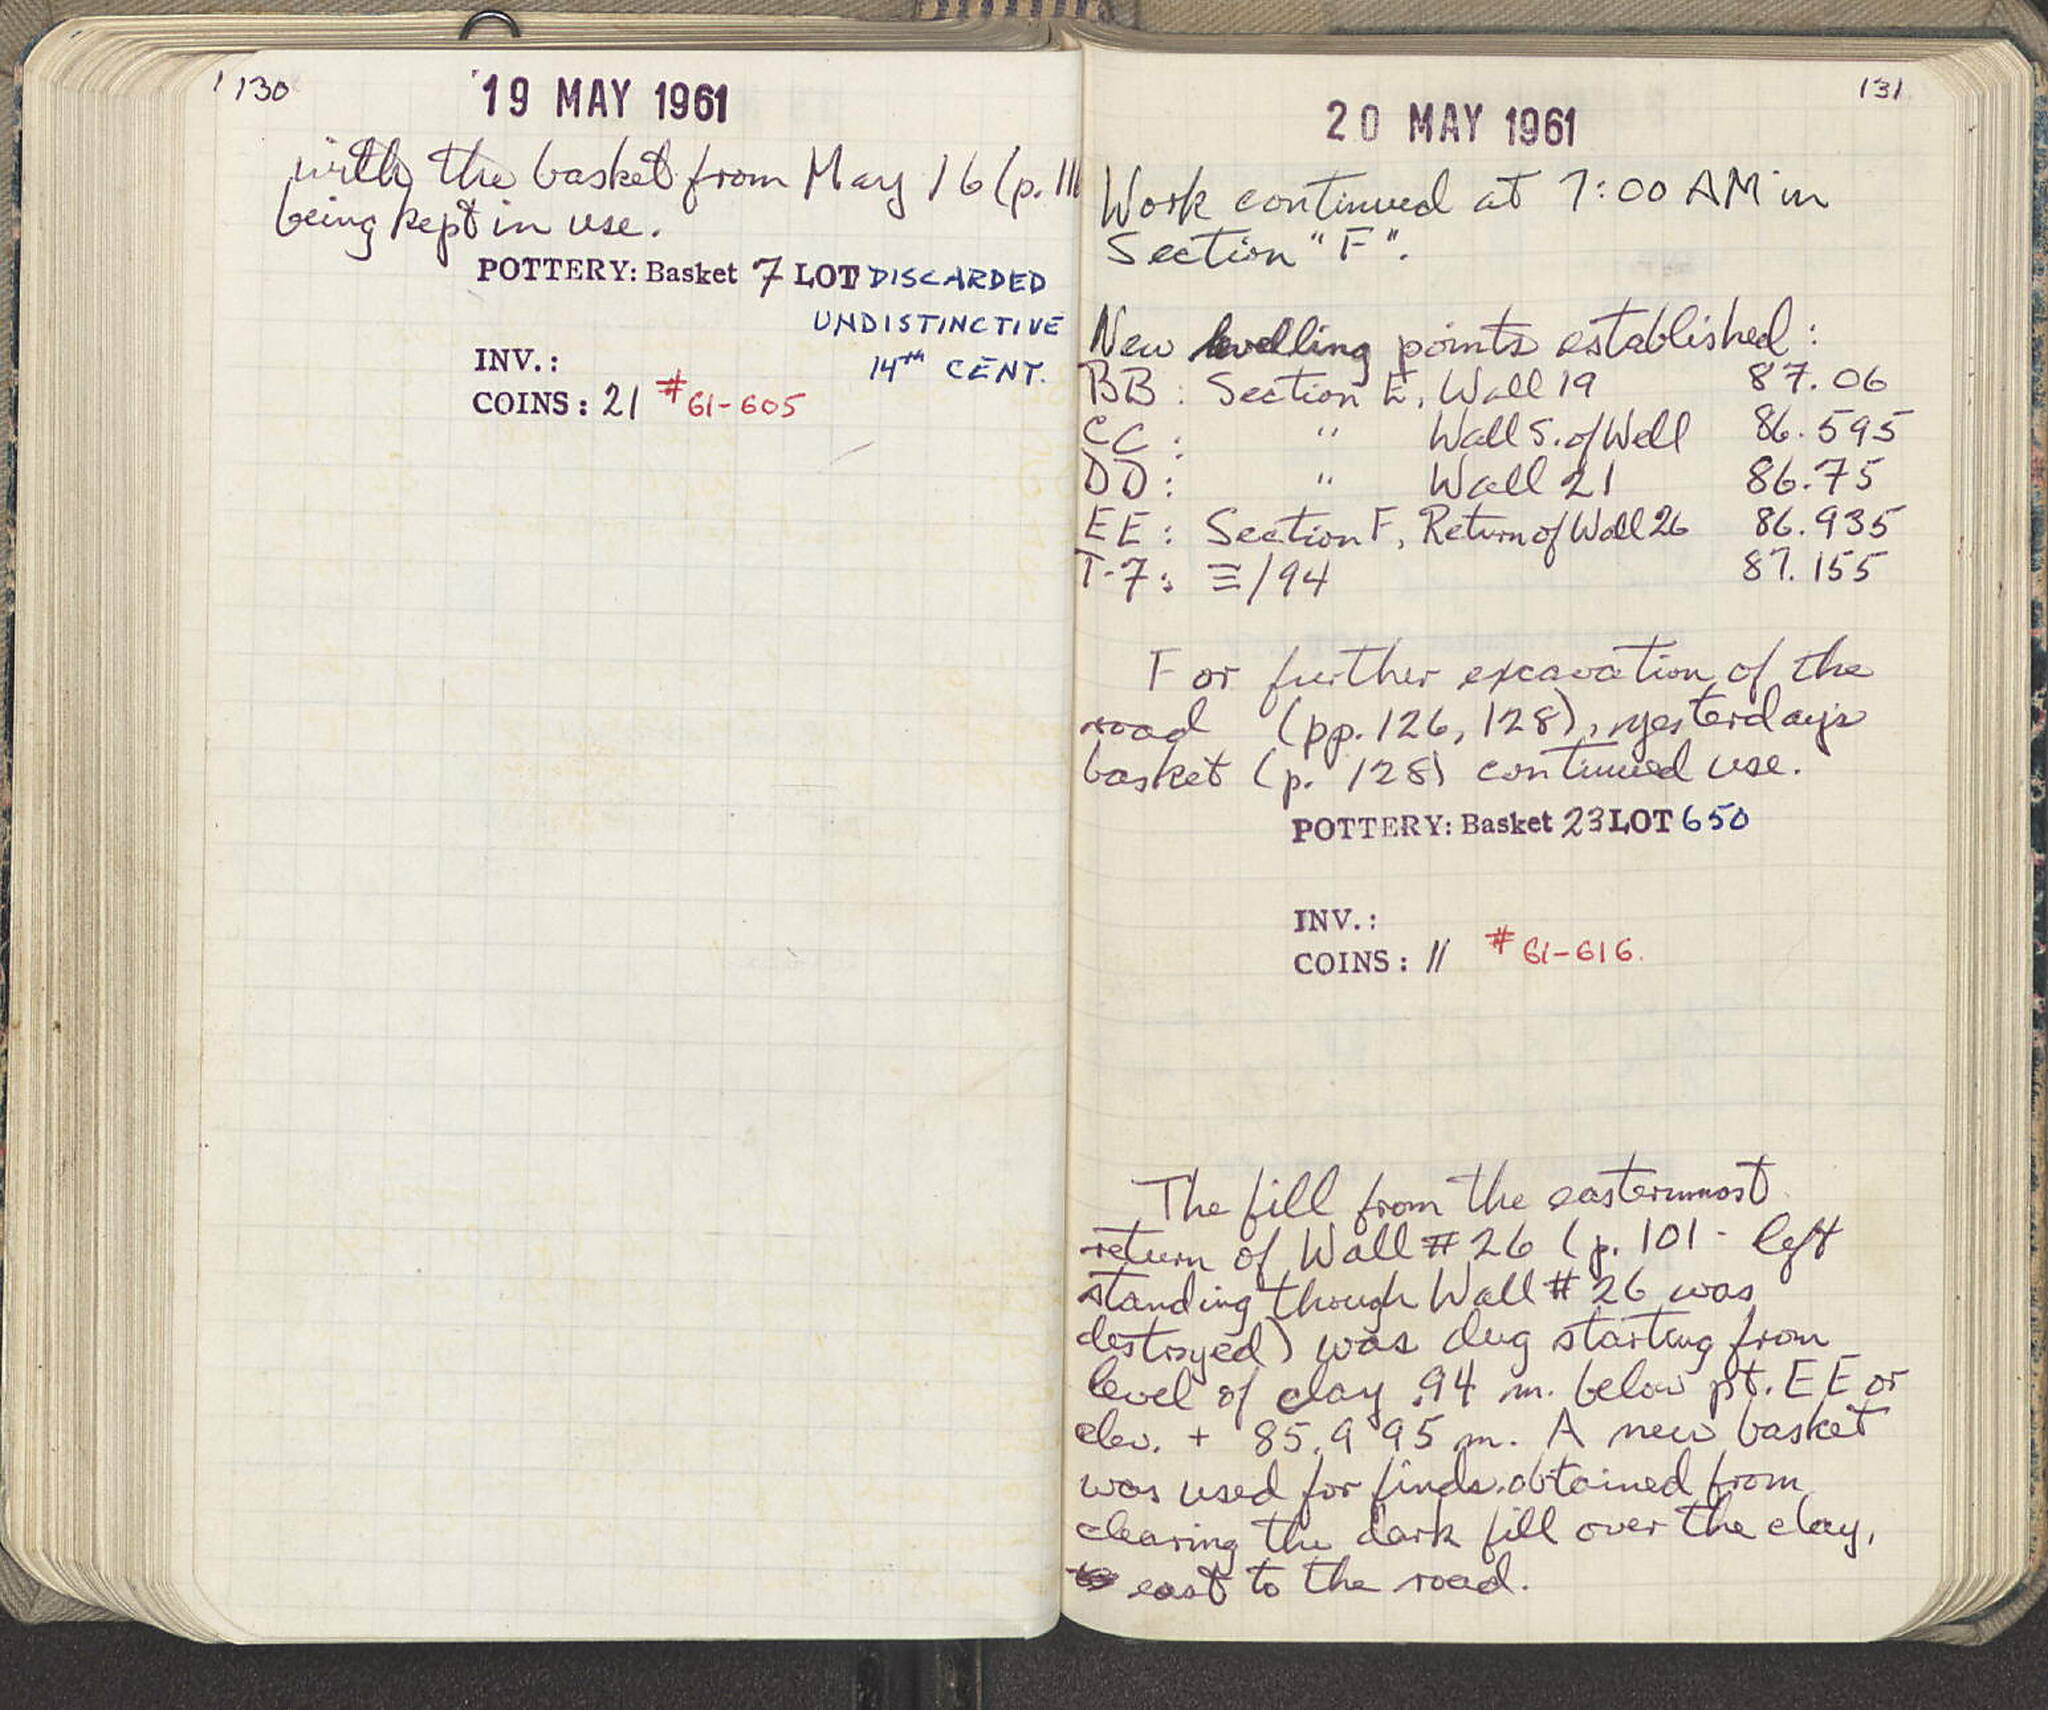 130
19 MAY 1961
with the basket from May 16 (p. 111
being kept in use.
POTTERY: Basket 7 LOT DISCARDED
UNDISTINCTIVE
14th CENT.
INV.:
COINS: 21 #61-605
131
20 MAY 1961
Work continued at 7:00 AM in
Section "F".
New levelling points established:
BB: Section E, Wall 19 87.06
CC: " Wall S. of Well 86.595
DD: " Wall 21 86.75
EE: Section F, Return of Wall 26 86.935
T-7: Ξ/94 87.155
For further excavation of the
road (pp. 126, 128), yesterday's
basket (p. 128) continued use.
POTTERY: Basket 23 LOT 650
INV.:
COINS: 11 #61-616.
The fill from the easternmost
return of Wall #26 (p. 101 - left
standing though Wall #26 was
destroyed) was dug starting from
level of clay .94 m. below pt. EE or
elev. + 85.995 m. A new basket
was used for finds obtained from
clearing the dark fill over the clay,
east to the road.